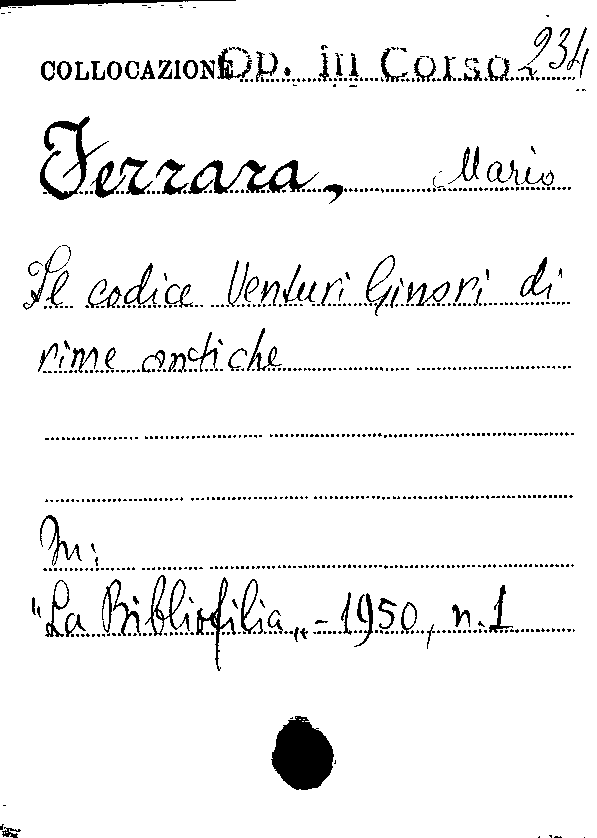 COLLOCAZIONE Op. in Corso 234
Ferrara, Mario
Il codice Venturi Ginori di
rime antiche
In:
"La Bibliofilia" - 1950, n. 1